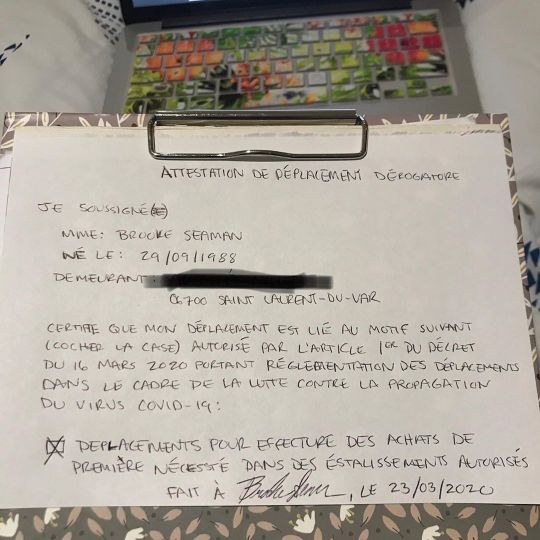 ATTESTATION DE DÉPLACEMENT DÉROGATORE
JE SOUSSIGNÉ(E)
MME: BROOKE SEAMAN
NÉ LE: 29/09/1988
DEMEURANT:
06700 SAINT LAURENT-DU-VAR
CERTIFIE QUE MON DÉPLACEMENT EST LIÉ AU MOTIF SUIVANT
(COCHER LA CASE) AUTORISÉ PAR L'ARTICLE 1ER DU DÉCRET
DU 16 MARS 2020 PORTANT RÉGLEEMENTATION DES DÉPLACEMENTS
DANS LE CADRE DE LA LUTTE CONTRE LA PROPAGATION
DU VIRUS COVID-19:
DEPLACEMENTS POUR EFFECTURE DES ACHATS DE
PREMIÈRE NÉCESSTÉ DANS DES ÉSTALISSEMENTS AUTORISÉS
FAIT À , LE 23/03/2020